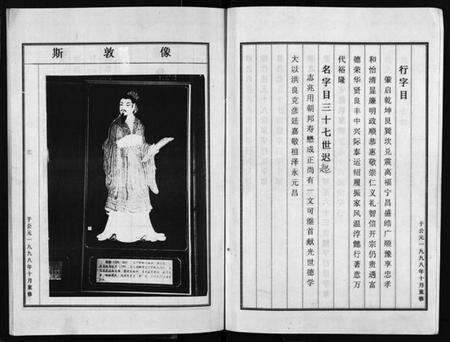 行字目
肇启乾坤艮巽坎兑震高福宁昌盛皓广顺豫亨忠孝
和怡清显廉明政顺恭惠敬崇仁义礼智信开宗仍贵遇富
德荣华贤良丰中兴际泰运绍履振家风温淳懿行著意万
代裕隆
名字目三十七世迟起
志兆用朝邦寿懋成正尚有一文可继首献光世德学
大以洪良克彦廷嘉敬祖泽永元昌
于公元一九九八年十月重修
斯敦像
于公元一九九八年十月重修